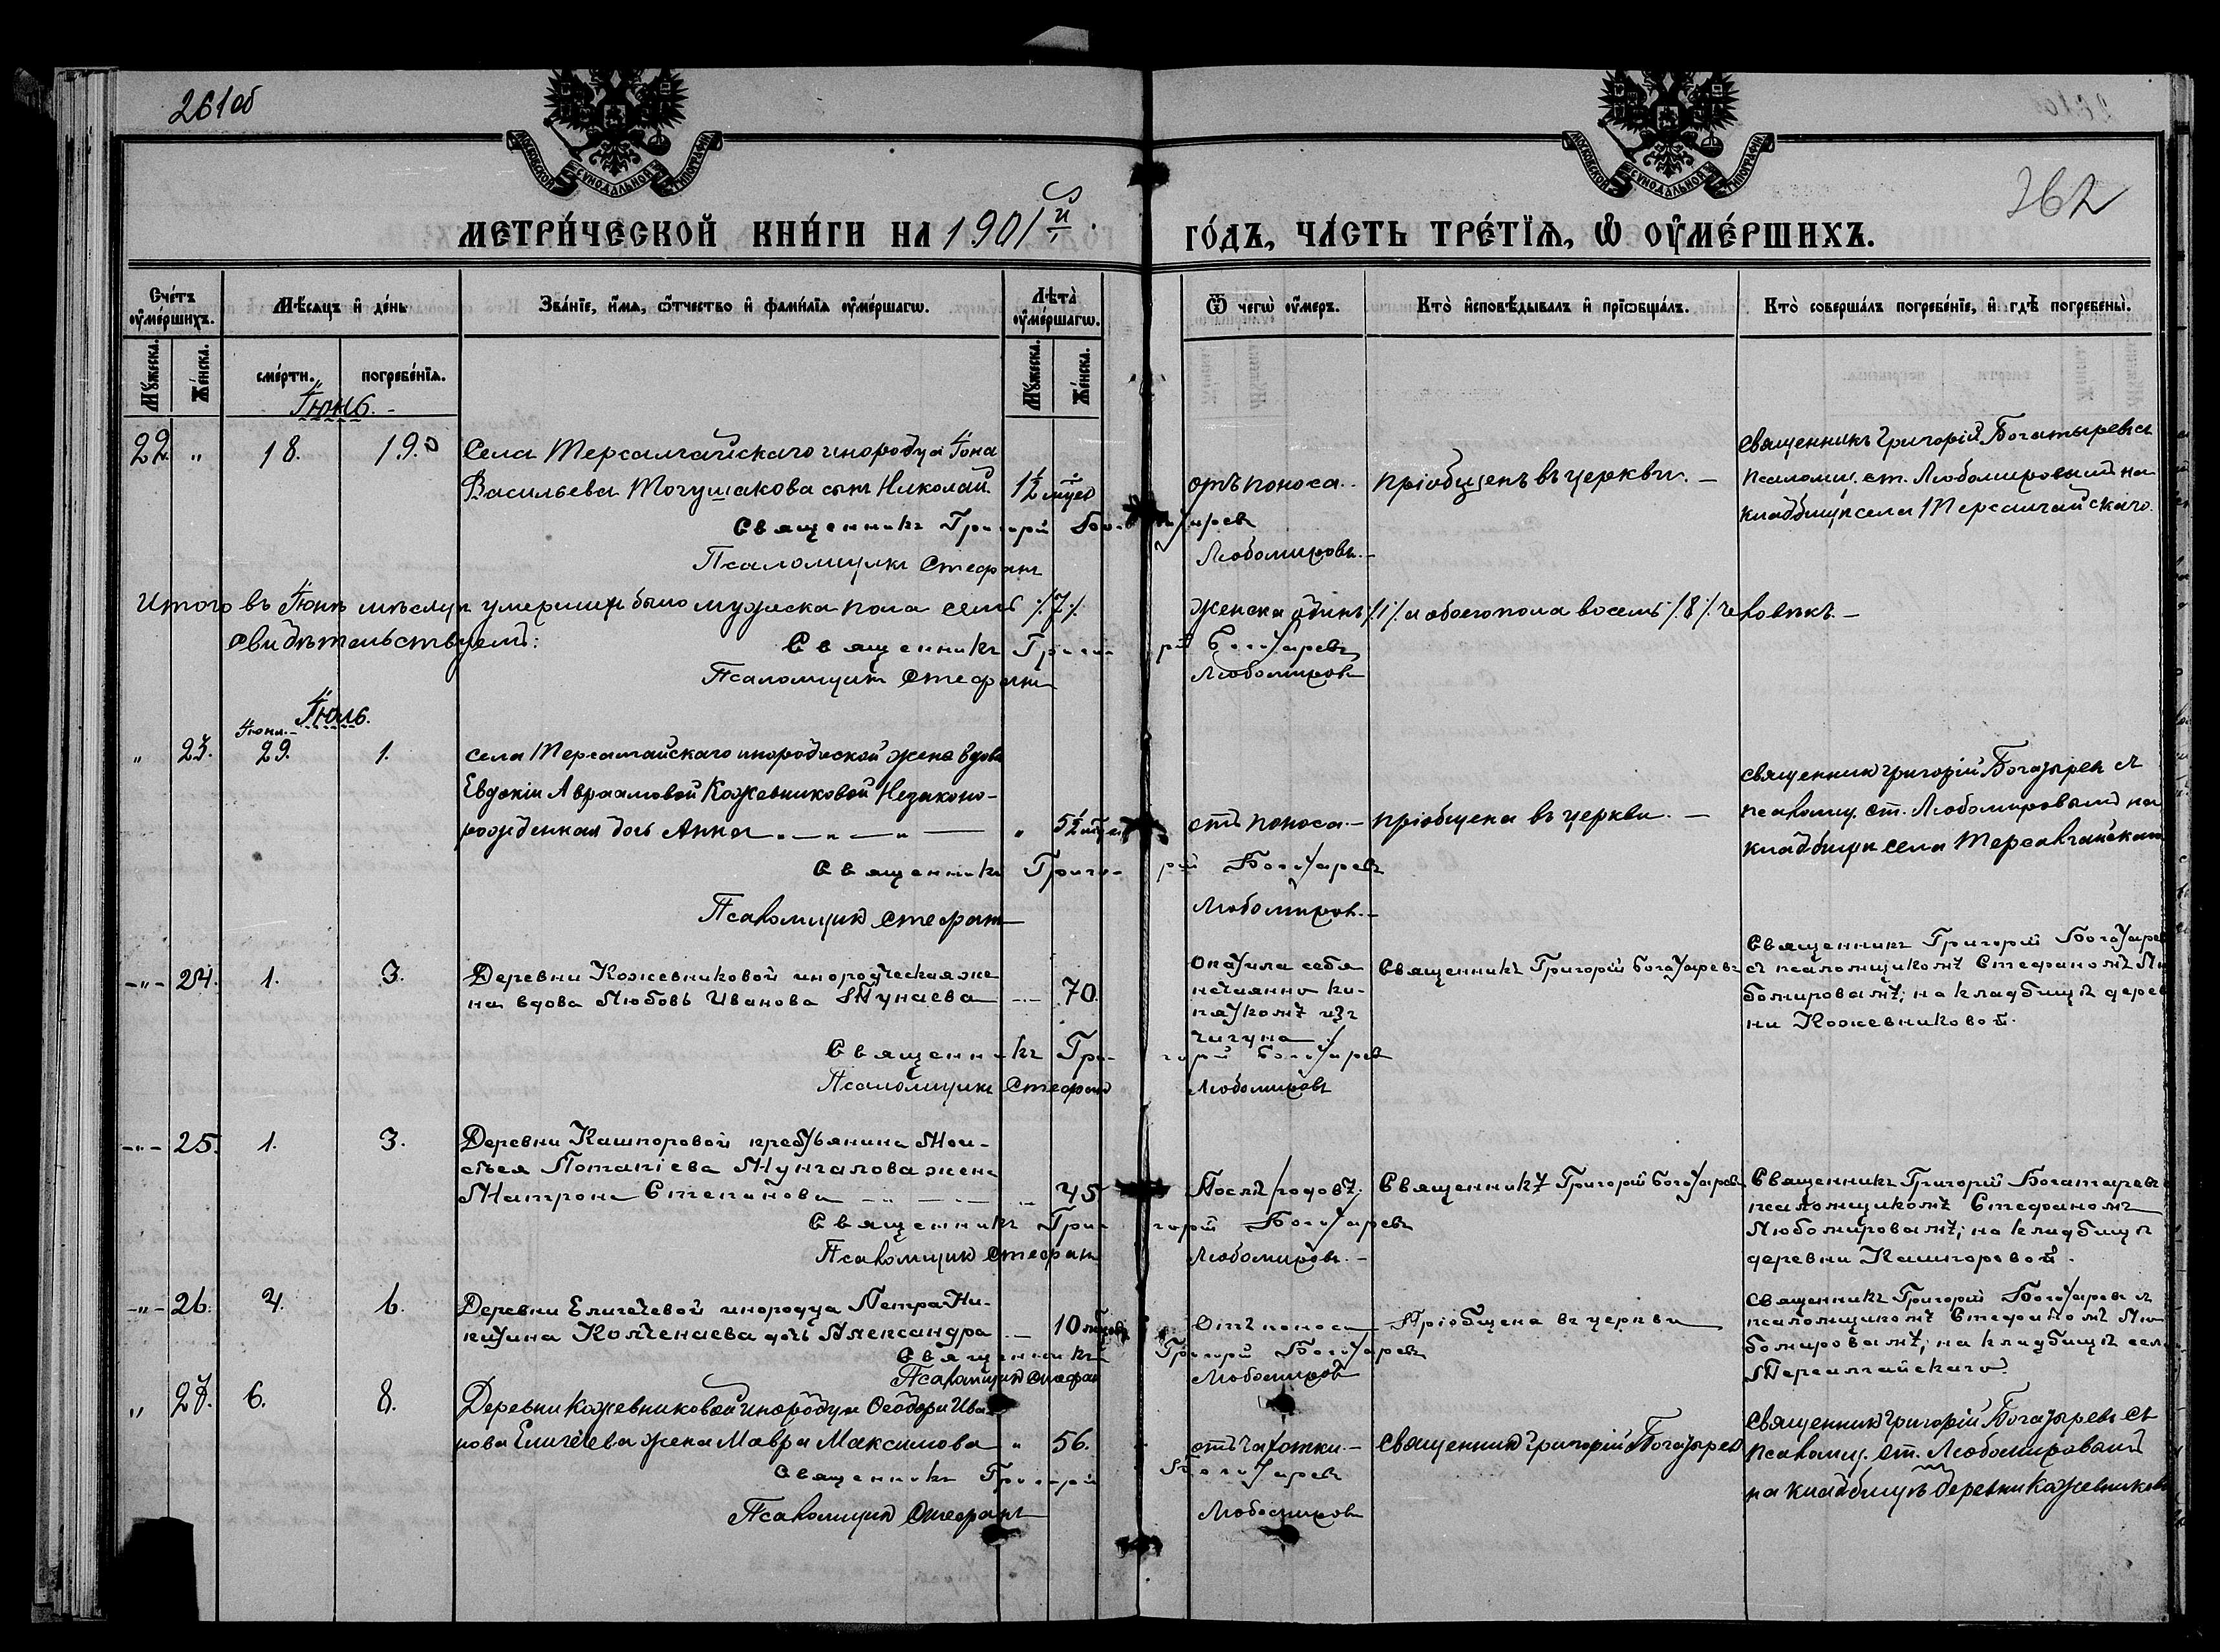 261об
МОСКОВСКОЙ СѴНОДАЛЬНОЙ ТИПОГРАФІИ
МОСКОВСКОЙ СѴНОДАЛЬНОЙ ТИПОГРАФІИ
262
МЕТРИ́ЧЕСКОЙ КНИ́ГИ НА 1901й
ГО́ДЪ, ЧА́СТЬ ТРЕ́ТЇѦ, Ѡ ОУ҆МЕ́РШИХЪ.
Сче́тъ оу҆ме́ршихъ.
Мѣ́сѧцъ и҆ де́нь
Зва́нїе, и҆́мѧ, ѻ҆́тчество и҆ фами́лїѧ оу҆ме́ршагѡ.
Лѣ́та оу҆ме́ршагѡ.
Ѿ чегѡ̀ оу҆́меръ.
Кто̀ и҆сповѣ́дывалъ и҆ прїѡбща́лъ.
Кто̀ соверша́лъ погребе́нїе, и҆ гдѣ̀ погребены̀.
Мꙋ́жеска.
Же́нска.
сме́рти.
погребе́нїѧ.
Мꙋ́жеска.
Же́нска.
Іюнь.
22 " 18. 19.
Села Терсалгайскаго инородца Іона
Васильева Тогушакова сынъ Николай. 1½
отъ поноса. пріобщенъ въ церкви. —
Священникъ Григорій Богатыревъ съ
псаломщ. Ст. Любомировымъ на
кладбищѣ села Терсалгайскаго.
Священникъ Григорій Богатыревъ
Псаломщикъ Стефанъ Любомировъ. —
Итого въ Іюнѣ мѣсяцѣ умершихъ было мужеска пола семь /7/. женска одинъ /1/ и обоего пола восемь /8/ человѣкъ. —
Свидѣтельствуемъ: Священникъ Григорій Богатыревъ
Псаломщикъ Стефанъ Любомировъ
Іюль.
Іюня.
" 23. 29. 1.
села Терсалгайскаго инородческой жена вдова
Евдокіи Авраамовой Кожевниковой Незаконо-
рожденная дочь Анна " 5½
отъ поноса. — пріобщена въ церкви. —
священникъ Григорій Богатыревъ съ
псаломщ. Ст. Любомировымъ на
кладбищѣ села Терсалгайскаго
Священникъ Григорій Богатыревъ
Псаломщикъ Стефанъ Любомировъ. —
-"- 24. 1. 3.
Деревни Кожевниковой инородческая же
на вдова Любовь Иванова Тунаева — 70.
Опатила себя
нечаянно ки-
пяткомъ изъ
чугуна
Священникъ Григорій Богатыревъ
Священникъ Григорій Богатырев
съ псаломщикомъ Стефаномъ Лю
бомировымъ; на кладбищѣ дерев
ни Кожевниковой.
Священникъ Григорій Богатырев
Псаломщикъ Стефанъ Любомировъ
-"- 25. 1. 3.
Деревни Кашпоровой крестьянина Мои-
сѣея Потапіева Мунгалова жена
Матрона Степанова — 45
Послѣ родовъ.
Священникъ Григорій Богатыревъ
Священникъ Григорій Богатыревъ
псаломщикомъ Стефаномъ
Любомировымъ; на кладбищѣ
деревни Кашпоровой.
Священникъ Григорій Богатыревъ
Псаломщикъ Стефанъ Любомировъ. —
-"- 26. 4. 6.
Деревни Еличевой инородца Петра Ни-
китина Колченаева дочь Александра — 10
Отъ поноса — Пріобщена въ церкви
Священникъ Григорій Богатыревъ съ
псаломщикомъ Стефаномъ Лю
бомировымъ; на кладбищѣ села
Терсалгайскаго.
Священникъ Григорій Богатыревъ
Псаломщикъ Стефанъ Любомировъ
" 27. 6. 8.
Деревни Кожевниковой инородца Ѳеодора Ива-
нова Еличева жена Мавра Максимова " 56.
отъ чахотки. — Священникъ Григорій Богатырев
Священникъ Григорій Богатыревъ съ
Псаломщ. Ст. Любомировымъ
на кладбищѣ деревни Кожевниковой
Священникъ Григорій Богатыревъ
Псаломщикъ Стефанъ Любомировъ